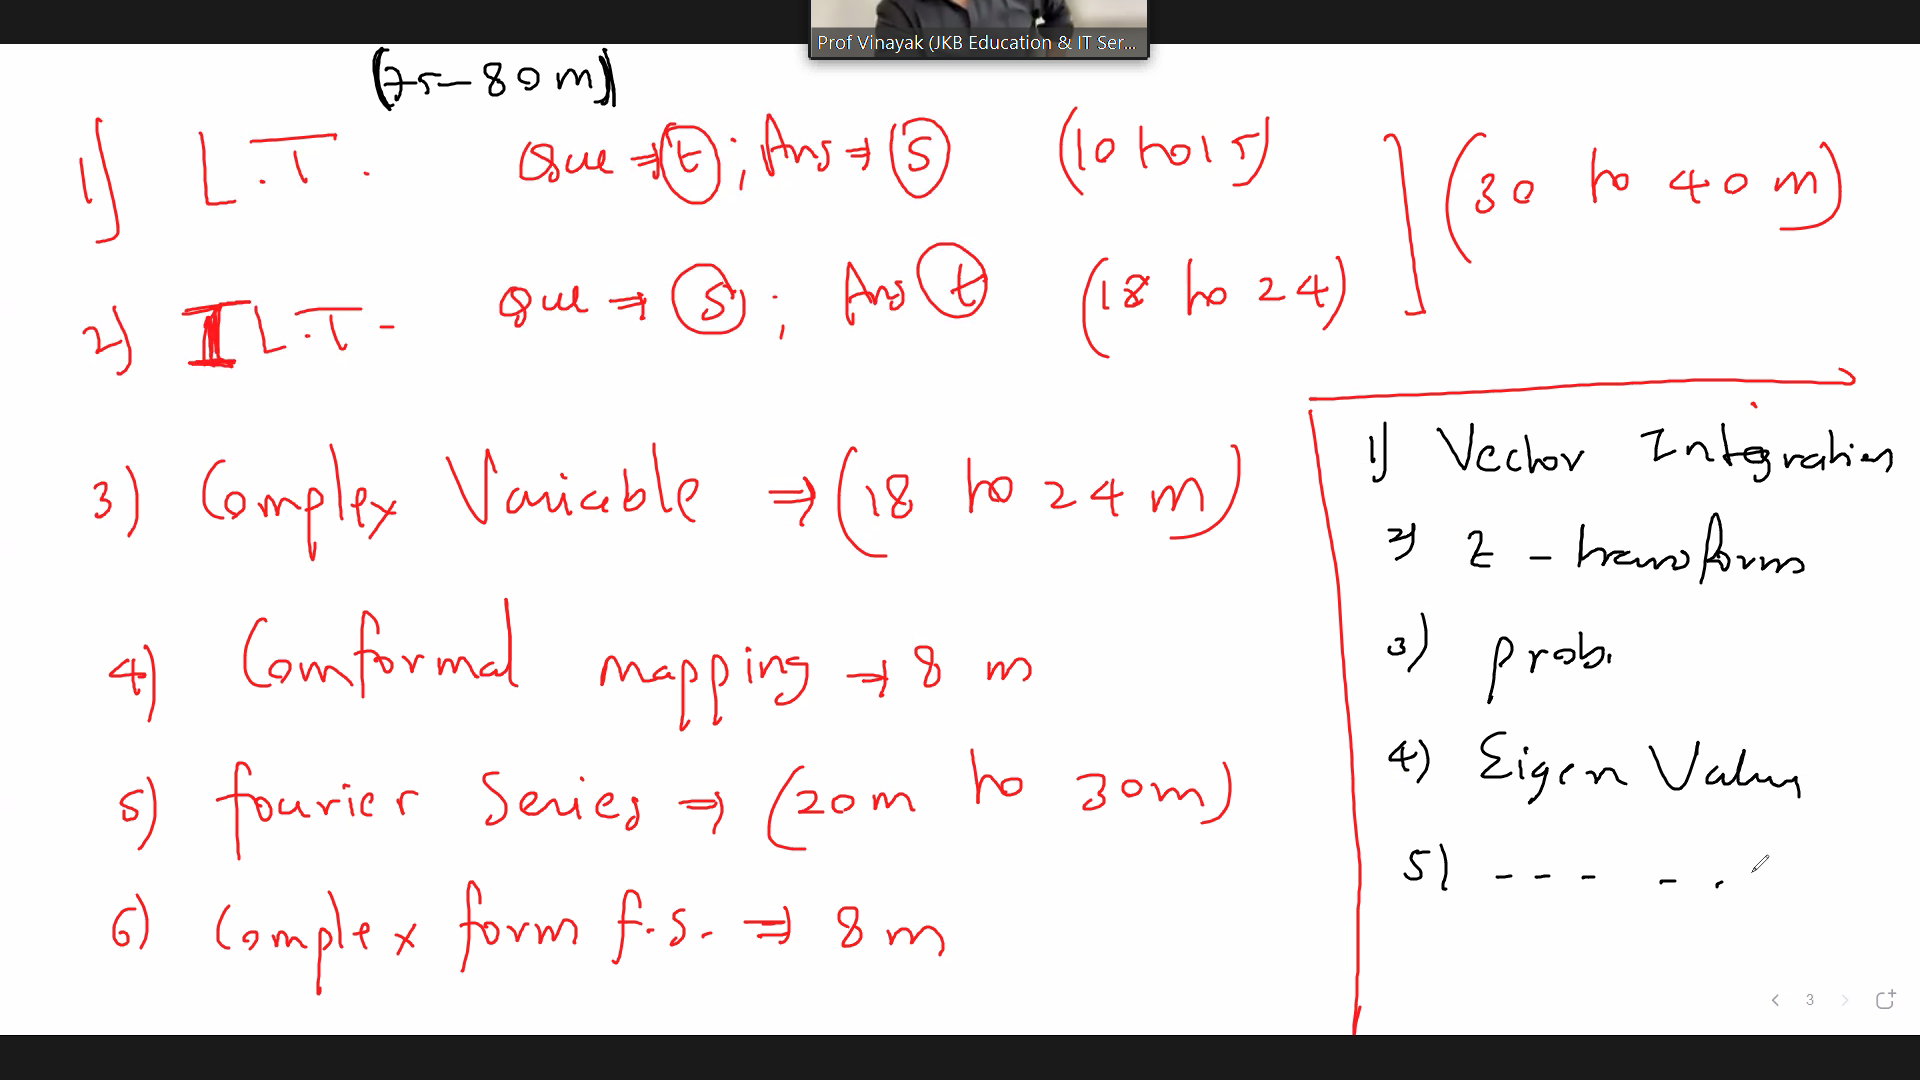 Prof Vinayak (JKB Education & IT Ser...
(75-80m)
1) L.T. Que ⇒ t ; Ans ⇒ s (10 to 15)
(30 to 40m)
2) ILT- Que ⇒ s ; Ans t (18 to 24)
3) Complex Variable ⇒ (18 to 24 m)
4) Comformal mapping → 8 m
5) fourier Series ⇒ (20m to 30m)
6) Complex form f.s. ⇒ 8 m
1) Vector Integration
2) Z - transform
3) prob.
4) Eigen Value
5) - - - - .
3